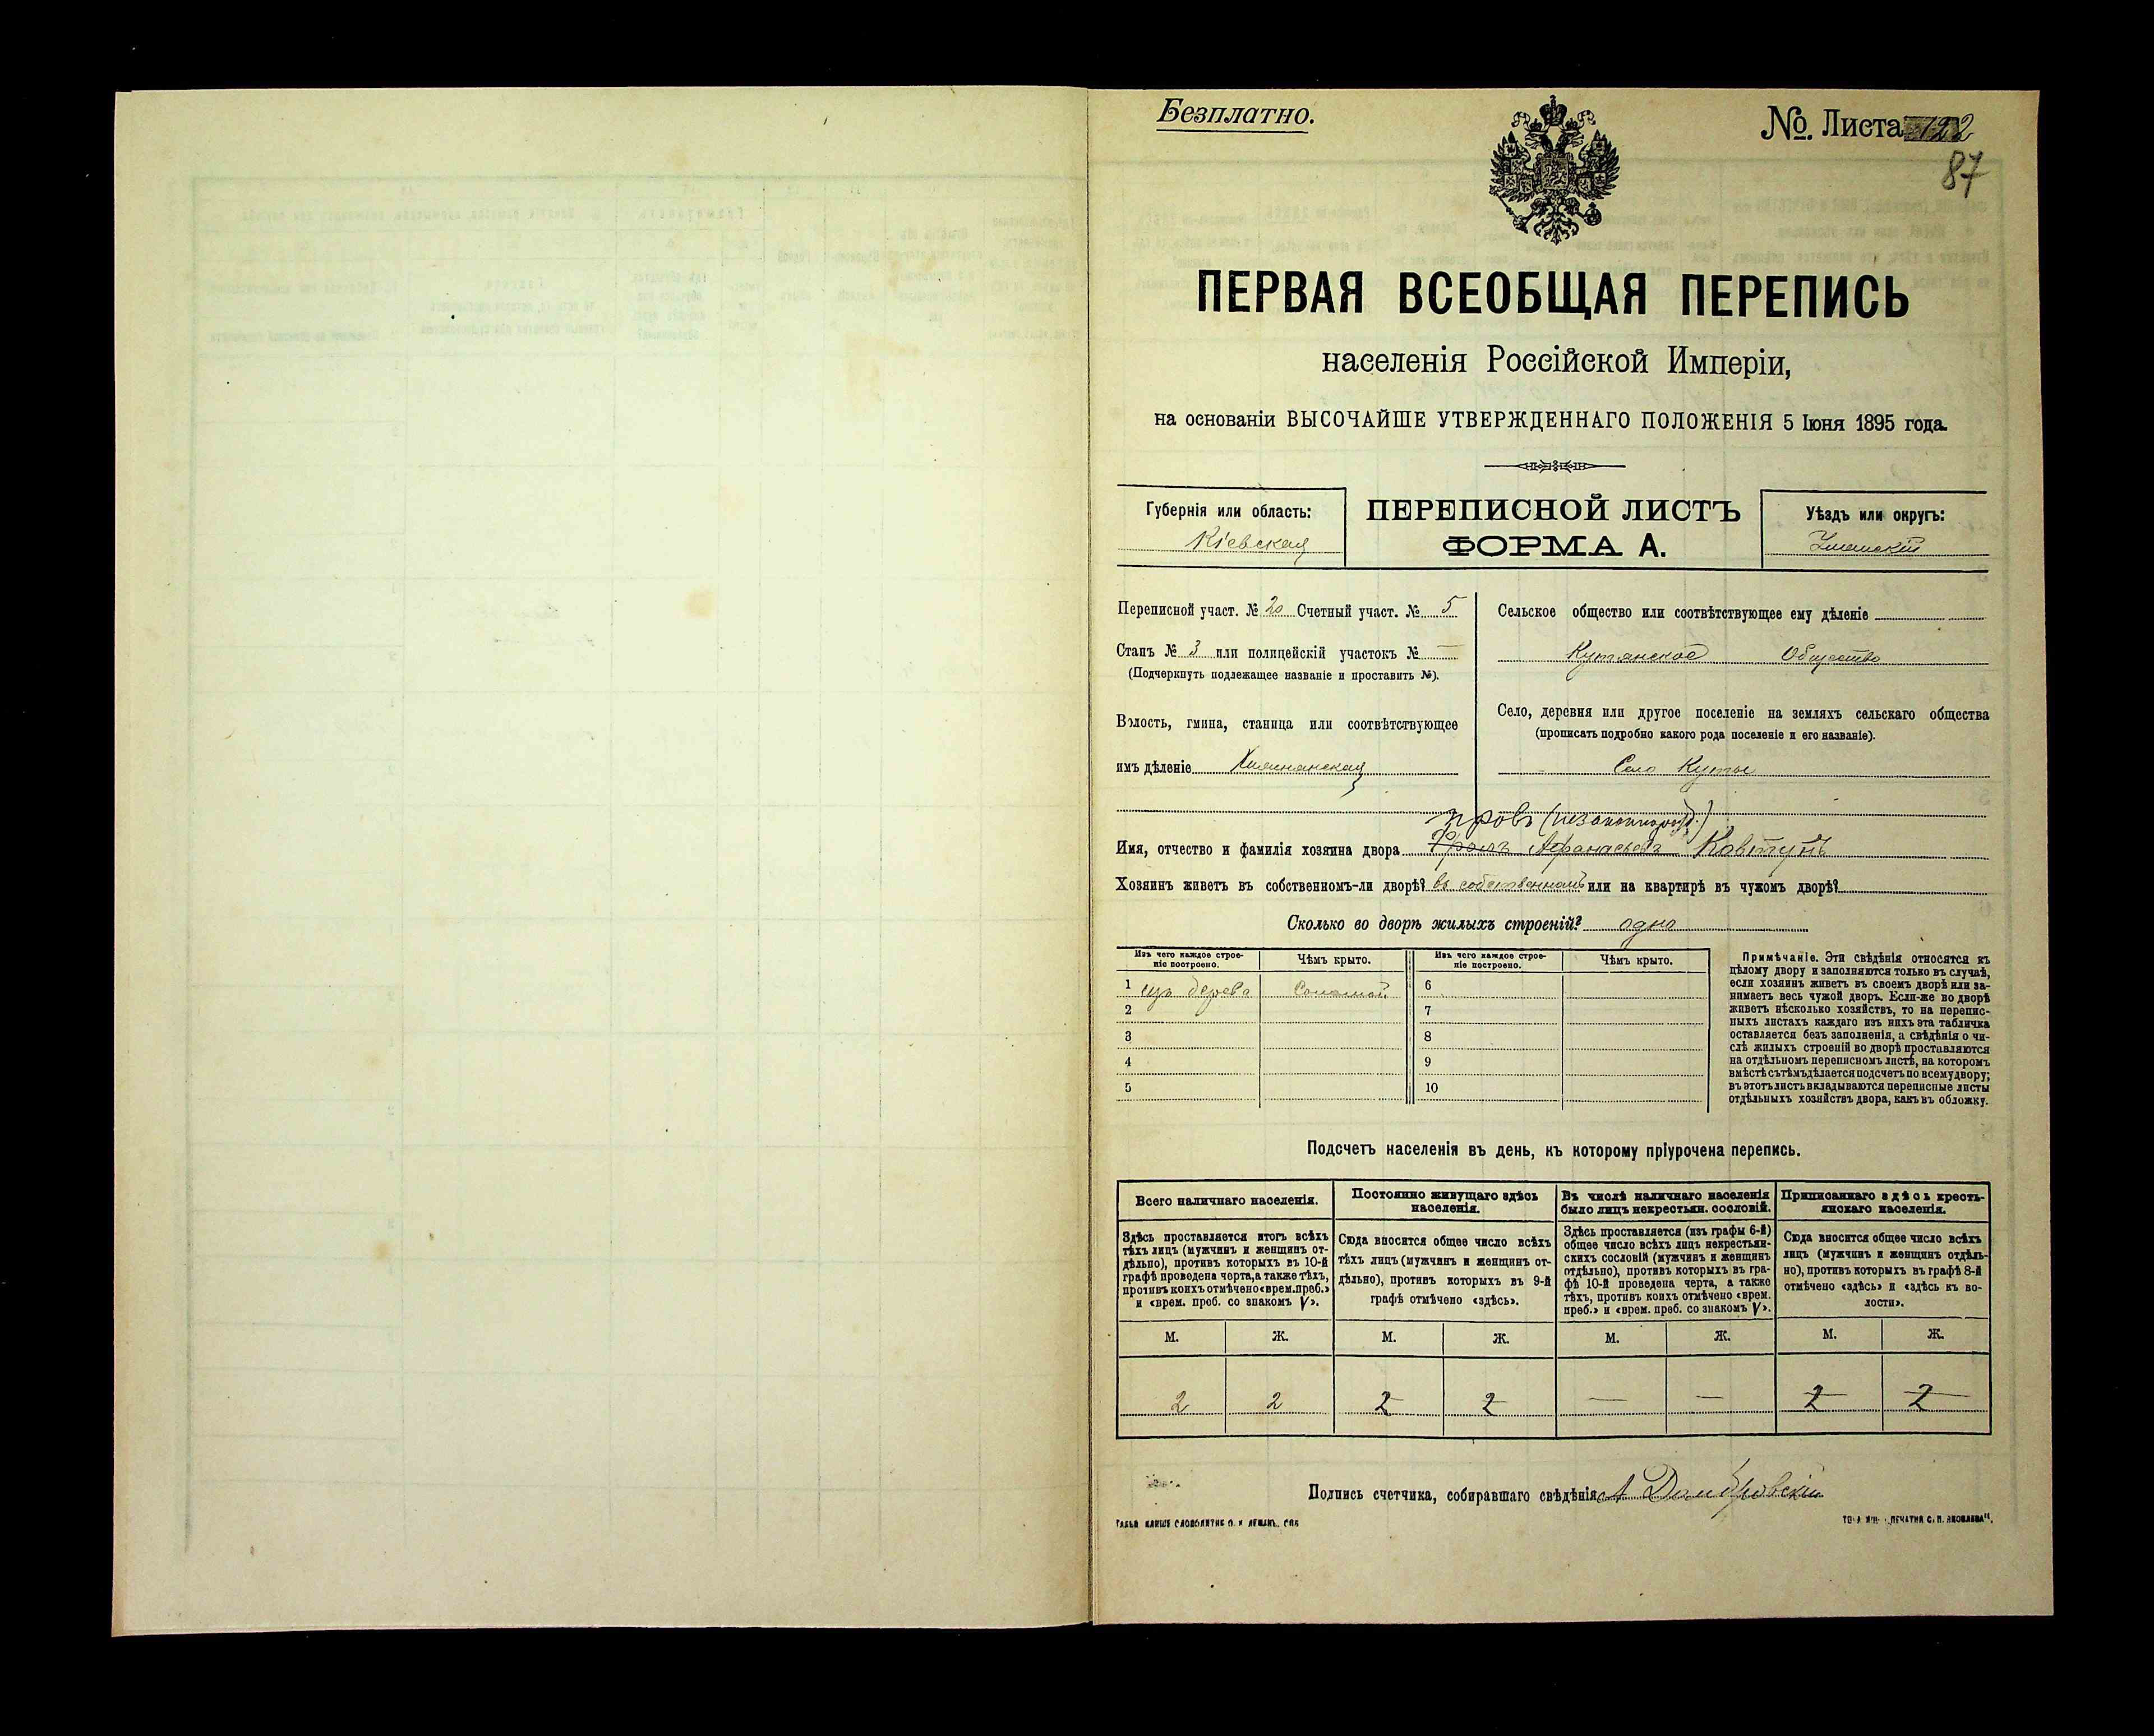 Безплатно.
№. Листа 122
87
ПЕРВАЯ ВСЕОБЩАЯ ПЕРЕПИСЬ
населенія Россійской Имперіи,
на основаніи ВЫСОЧАЙШЕ УТВЕРЖДЕННАГО ПОЛОЖЕНІЯ 5 Іюня 1895 года.
Губернія или область:
Кіевская
ПЕРЕПИСНОЙ ЛИСТЪ
ФОРМА А.
Уѣздъ или округъ:
Уманскій
Переписной участ. № 20 Счетный участ. № 5
Станъ № 3 или полицейскій участокъ № —
(Подчеркнуть подлежащее названіе и проставить №).
Волость, гмина, станица или соотвѣтствующее
имъ дѣленіе
Сельское общество или соотвѣтствующее ему дѣленіе
Кутянское Общество
Село, деревня или другое поселеніе на земляхъ сельскаго общества
(прописать подробно какого рода поселеніе и его названіе).
Село Куты
(незаконнорожд.)
Имя, отчество и фамилія хозяина двора Афанасьевъ Ковтунъ
Хозяинъ живетъ въ собственномъ-ли дворѣ? въ собственномъ или на квартирѣ въ чужомъ дворѣ?
Сколько во дворѣ жилыхъ строеній? одно
Изъ чего каждое строе-
ніе построено.
Чѣмъ крыто.
Изъ чего каждое строе-
ніе построено.
Чѣмъ крыто.
1 изъ дерева Соломой 6
2 7
3 8
4 9
5 10
Примѣчаніе. Эти свѣдѣнія относятся къ
цѣлому двору и заполняются только въ случаѣ,
если хозяинъ живетъ въ своемъ дворѣ или за-
нимаетъ весь чужой дворъ. Если-же во дворѣ
живетъ нѣсколько хозяйствъ, то на перепис-
ныхъ листахъ каждаго изъ нихъ эта табличка
оставляется безъ заполненія, а свѣдѣнія о чи-
слѣ жилыхъ строеній во дворѣ проставляются
на отдѣльномъ переписномъ листѣ, на которомъ
вмѣстѣ съ тѣмъ дѣлается подсчетъ по всему двору;
въ этотъ листъ вкладываются переписные листы
отдѣльныхъ хозяйствъ двора, какъ въ обложку.
Подсчетъ населенія въ день, къ которому пріурочена перепись.
Всего наличнаго населенія.
Здѣсь проставляется итогъ всѣхъ
тѣхъ лицъ (мужчинъ и женщинъ от-
дѣльно), противъ которыхъ въ 10-й
графѣ проведена черта, а также тѣхъ,
противъ коихъ отмѣчено «врем. преб.»
и «врем. преб. со знакомъ V».
Постоянно живущаго здѣсь
населенія.
Сюда вносится общее число всѣхъ
тѣхъ лицъ (мужчинъ и женщинъ от-
дѣльно), противъ которыхъ въ 9-й
графѣ отмѣчено «здѣсь».
Въ числѣ наличнаго населенія
было лицъ некрестьян. сословій.
Здѣсь проставляется (изъ графы 6-й)
общее число всѣхъ лицъ некрестьян-
скихъ сословій (мужчинъ и женщинъ
отдѣльно), противъ которыхъ въ гра-
фѣ 10-й проведена черта, а также
тѣхъ, противъ коихъ отмѣчено «врем.
преб.» и «врем. преб. со знакомъ V».
Приписаннаго здѣсь кресть-
янскаго населенія.
Сюда вносится общее число всѣхъ
лицъ (мужчинъ и женщинъ отдѣль-
но), противъ которыхъ въ графѣ 8-й
отмѣчено «здѣсь» и «здѣсь къ во-
лости».
М. Ж. М. Ж. М. Ж. М. Ж.
2 2 2 2 — — 2 2
Подпись счетчика, собиравшаго свѣдѣнія А Домбровскій